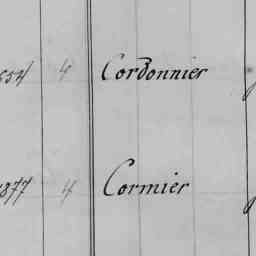 4 Cordonnier
1877 4 Cormier